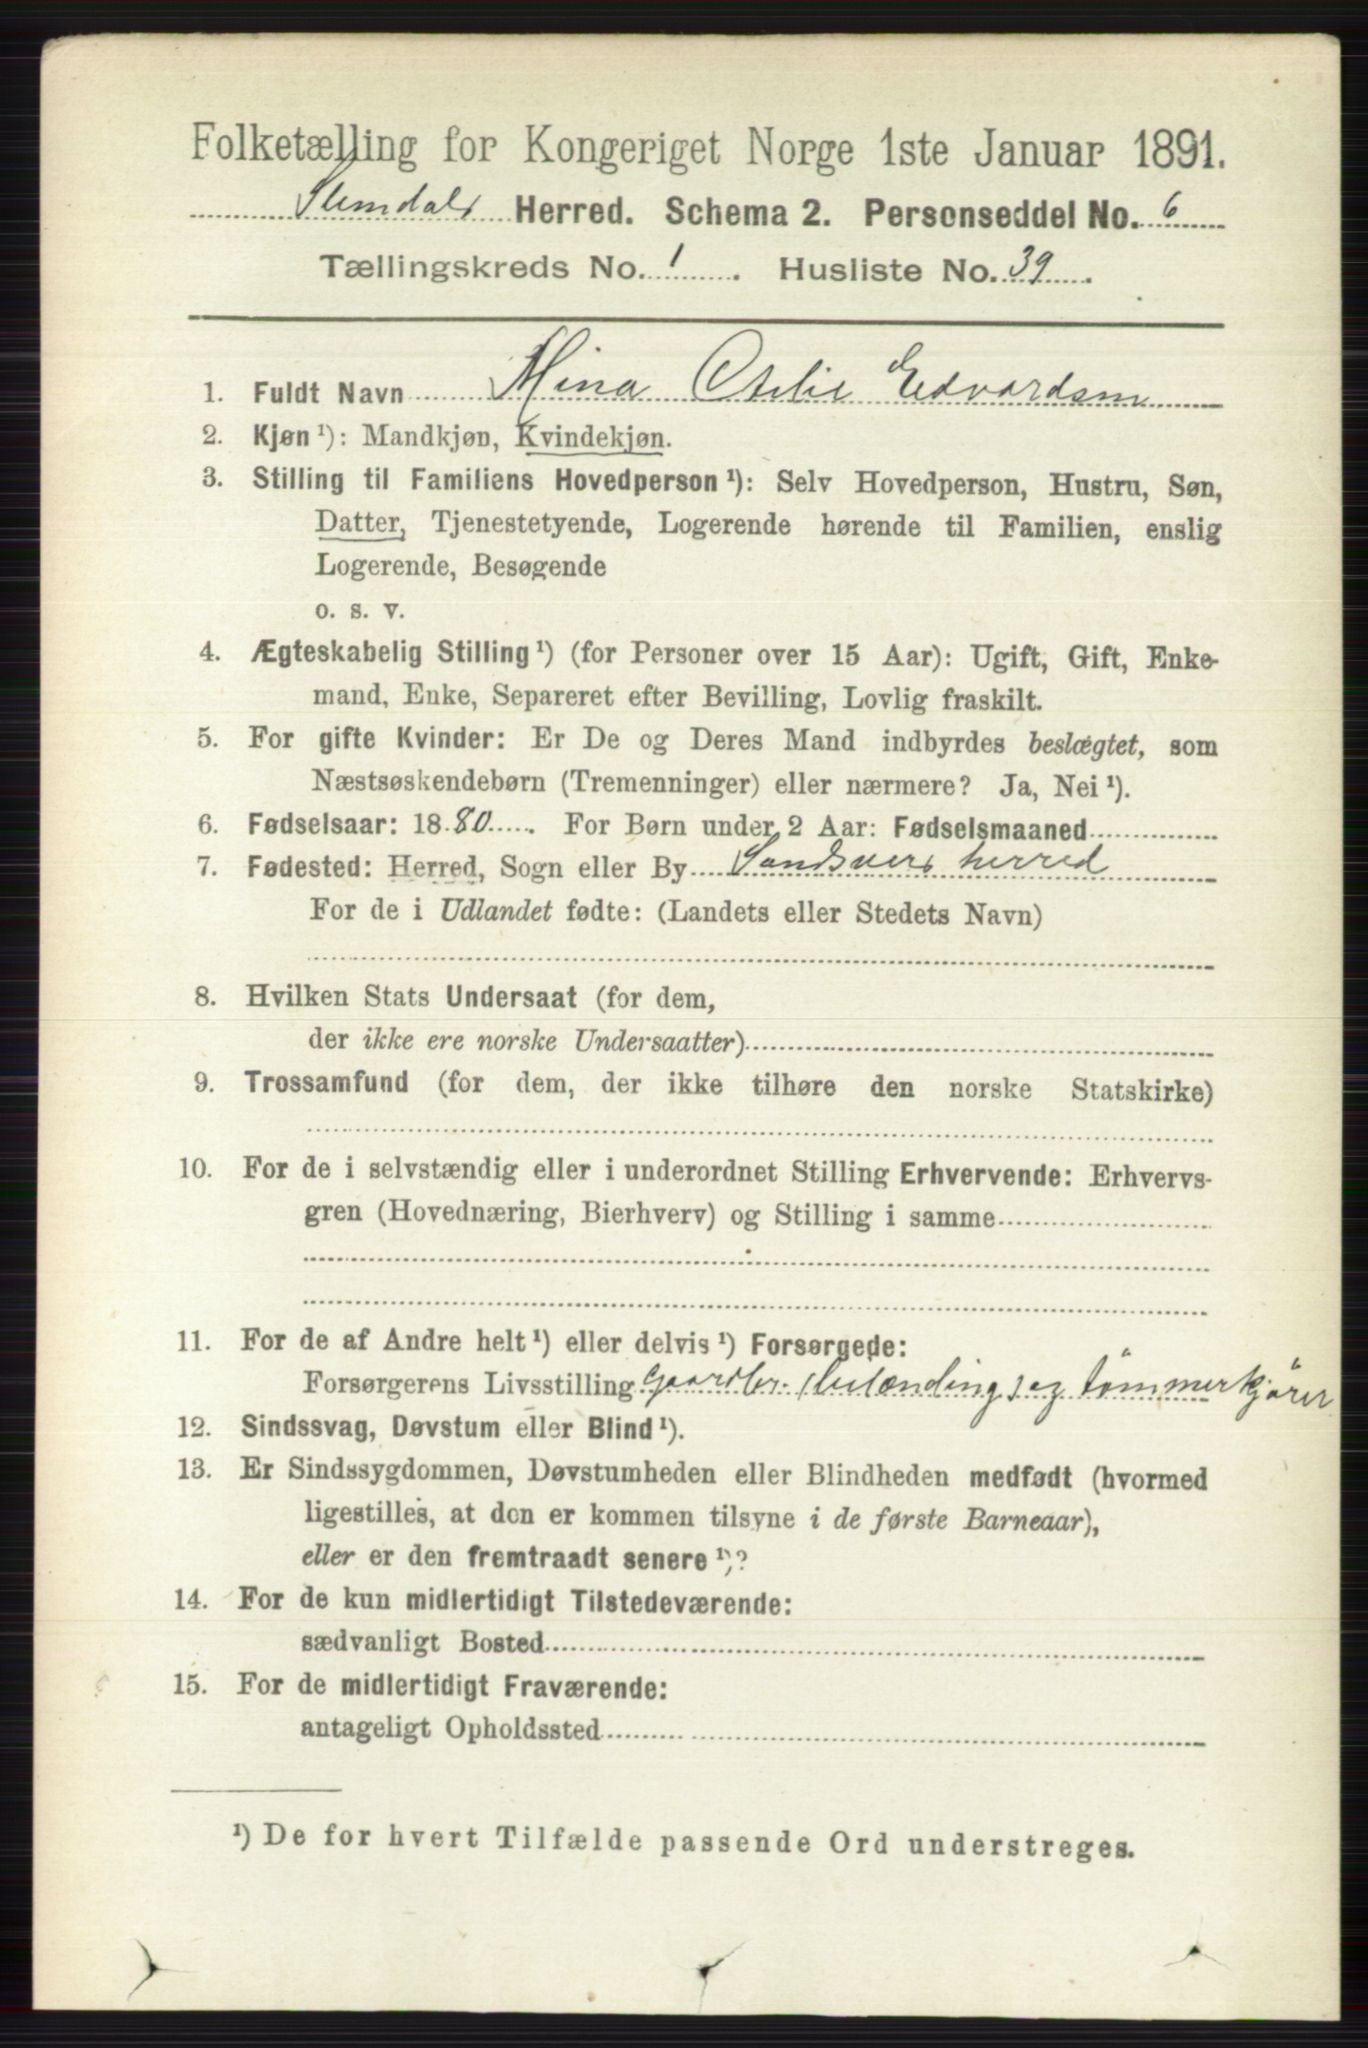 Folketælling for Kongeriget Norge 1ste Januar 1891.
Slemdals Herred. Schema 2. Personseddel No. 6
Tællingskreds No. 1. Husliste No. 39.
1. Fuldt Navn Mina Otelie Edvardsen
2. Kjøn ¹): Mandkjøn, Kvindekjøn.
3. Stilling til Familiens Hovedperson ¹): Selv Hovedperson, Hustru, Søn,
Datter, Tjenestetyende, Logerende hørende til Familien, enslig
Logerende, Besøgende
o. s. v.
4. Ægteskabelig Stilling ¹) (for Personer over 15 Aar): Ugift, Gift, Enke-
mand, Enke, Separeret efter Bevilling, Lovlig fraskilt.
5. For gifte Kvinder: Er De og Deres Mand indbyrdes beslægtet, som
Næstsøskendebørn (Tremenninger) eller nærmere? Ja, Nei ¹).
6. Fødselsaar: 1880. For Børn under 2 Aar: Fødselsmaaned
7. Fødested: Herred, Sogn eller By Sandsverd herred
For de i Udlandet fødte: (Landets eller Stedets Navn)
8. Hvilken Stats Undersaat (for dem,
der ikke ere norske Undersaatter)
9. Trossamfund (for dem, der ikke tilhøre den norske Statskirke)
10. For de i selvstændig eller i underordnet Stilling Erhvervende: Erhvervs-
gren (Hovednæring, Bierhverv) og Stilling i samme
11. For de af Andre helt ¹) eller delvis ¹) Forsørgede:
Forsørgerens Livsstilling Gaardbr. (leilænding) og tømmerkjører
12. Sindssvag, Døvstum eller Blind ¹).
13. Er Sindssygdommen, Døvstumheden eller Blindheden medfødt (hvormed
ligestilles, at den er kommen tilsyne i de første Barneaar),
eller er den fremtraadt senere ¹)?
14. For de kun midlertidigt Tilstedeværende:
sædvanligt Bosted
15. For de midlertidigt Fraværende:
antageligt Opholdssted
¹) De for hvert Tilfælde passende Ord understreges.